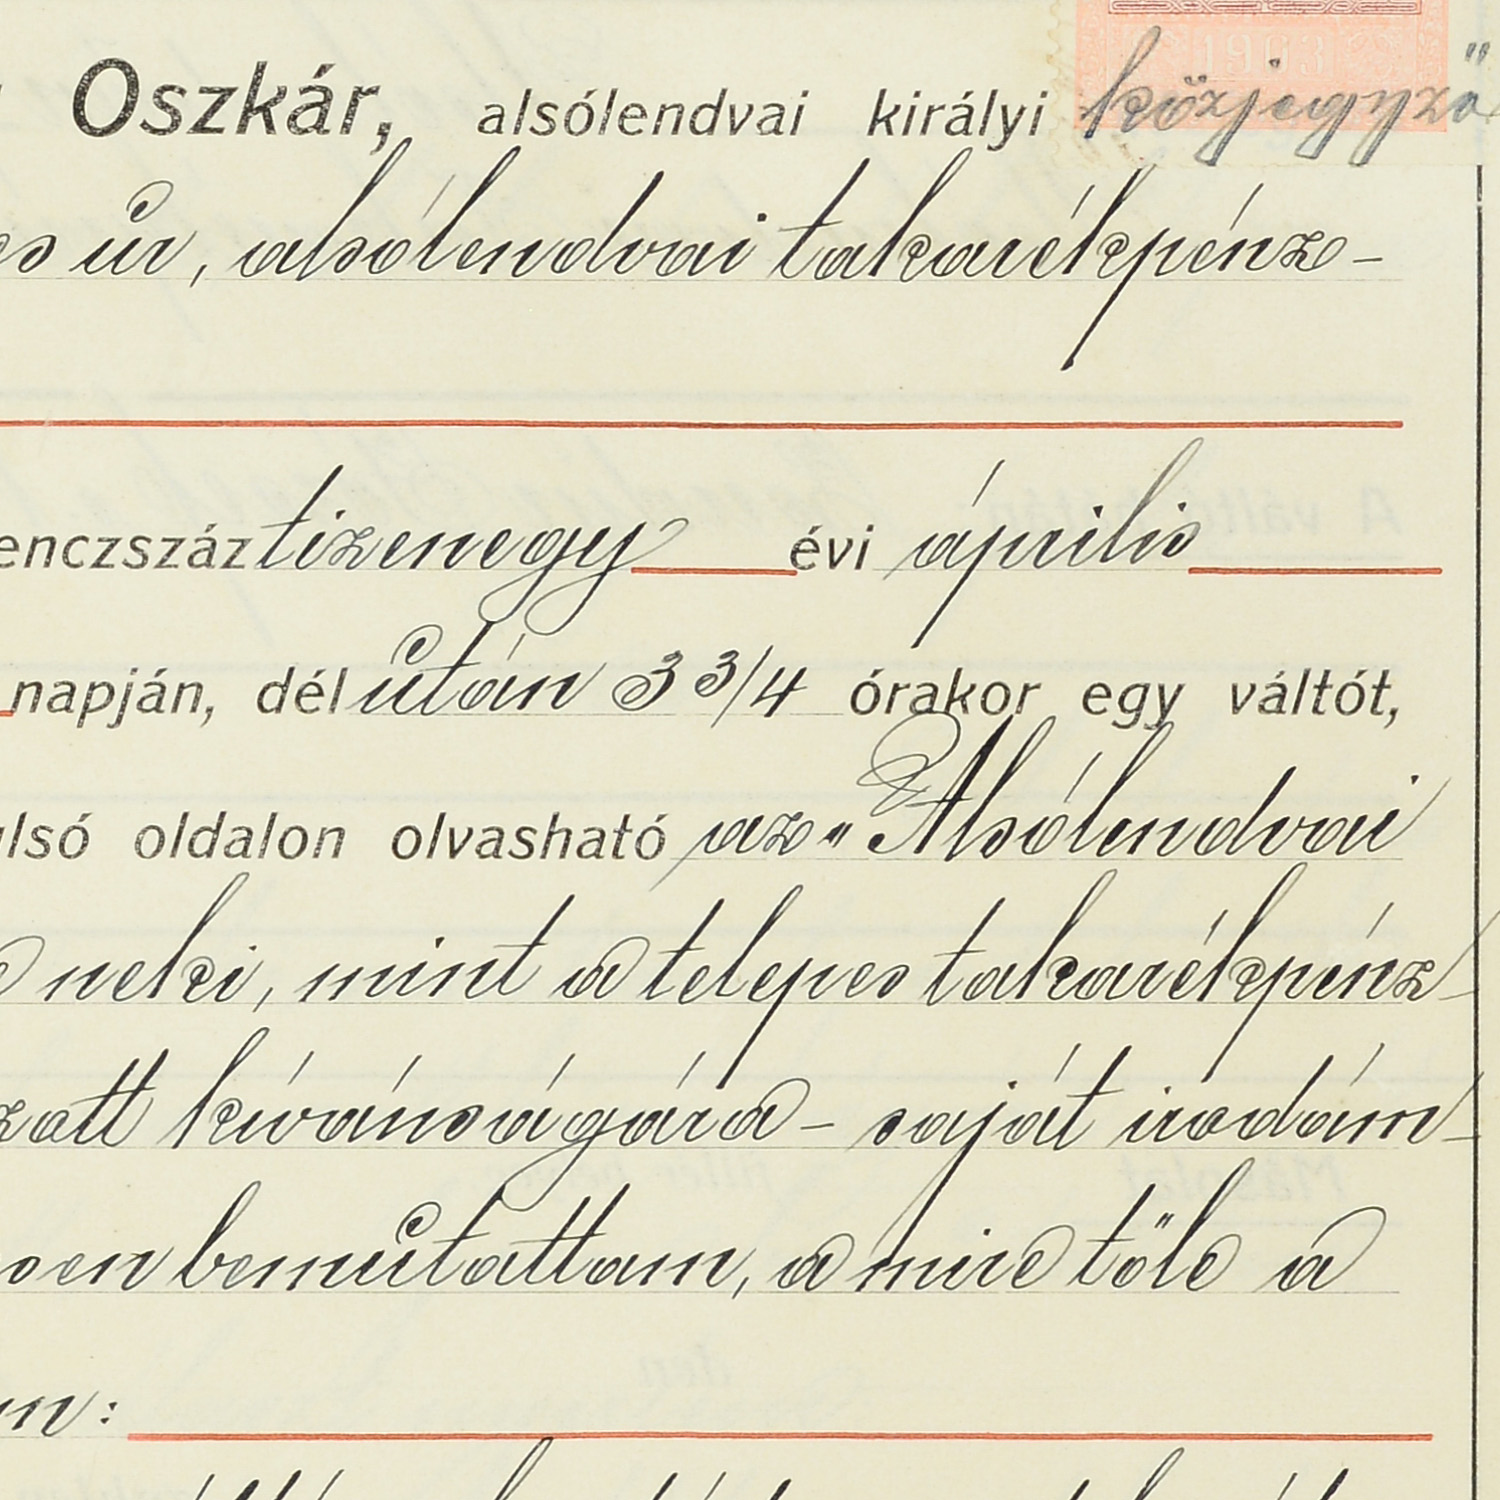 Oszkár, alsólendvai királyi közjegyző
es úr, alsólendvai takarékpénz-
enczszáz tizenegy évi április
napján, dél után 3 3/4 órakor egy váltót,
alsó oldalon olvasható az „Alsólendvai
neki, mint a telepes takarékpénz-
zott kívánságára - saját irodám-
sen bemutattam, a mire tőle a
m: